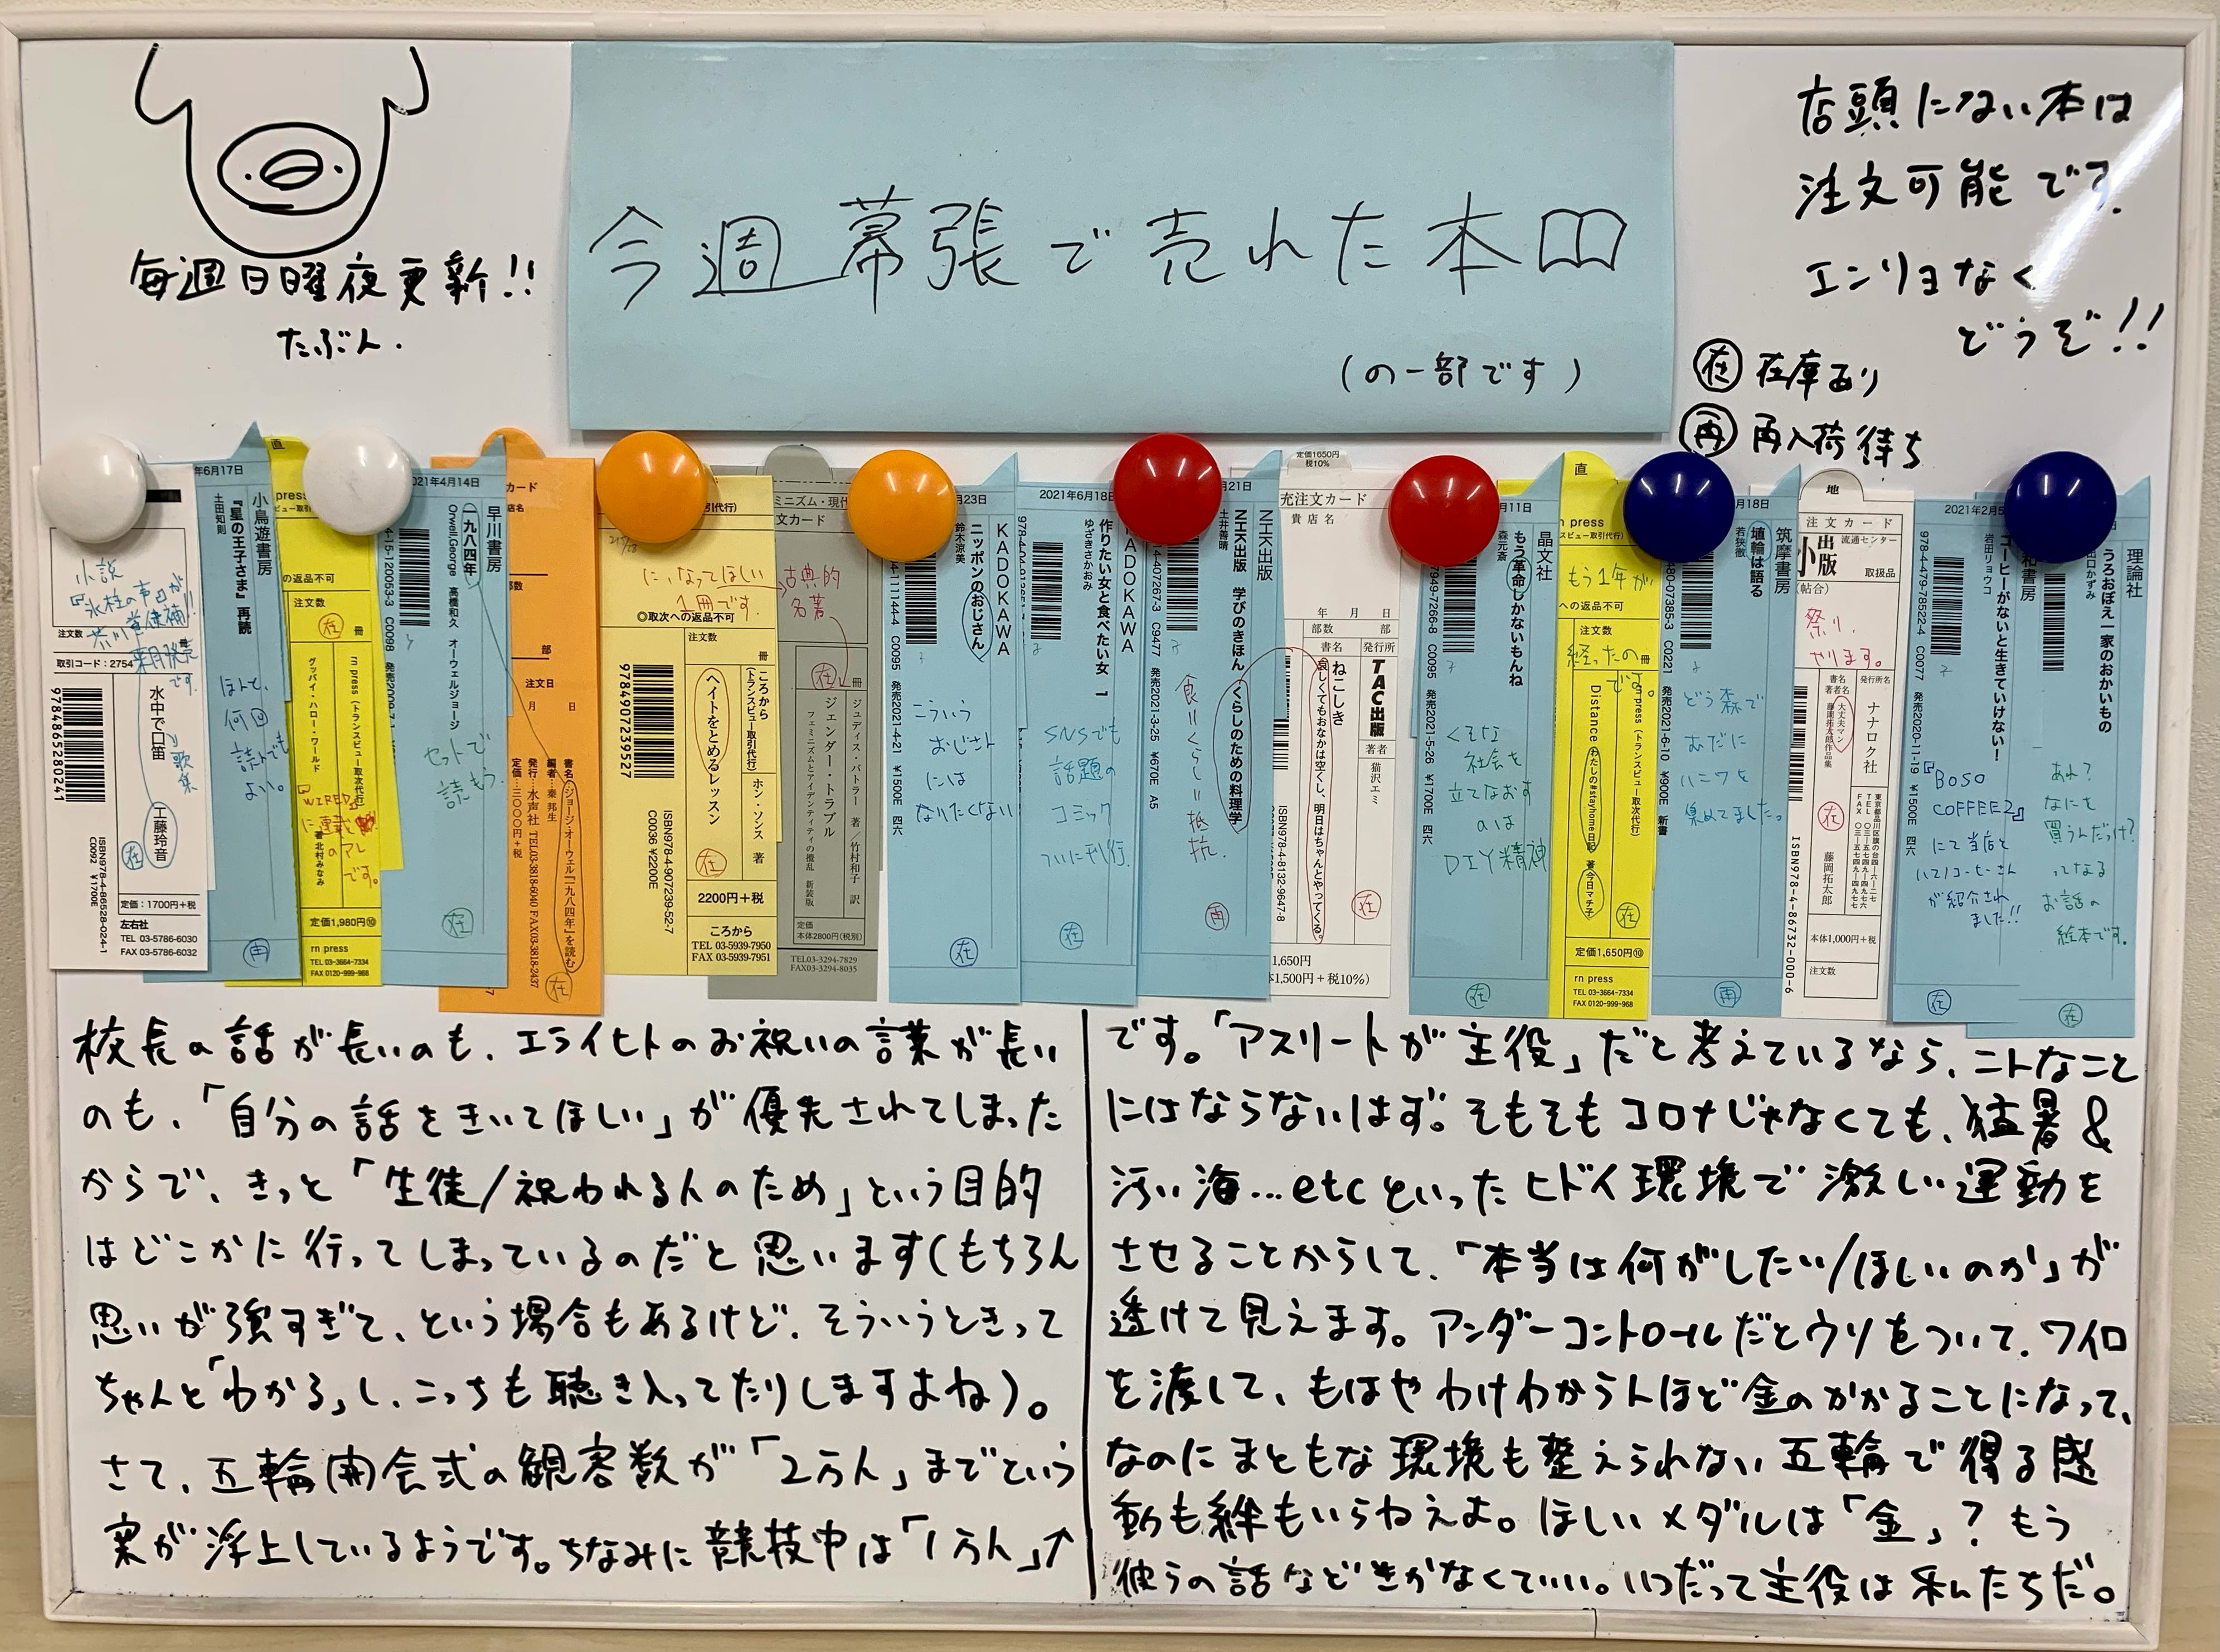 毎週日曜夜更新!!
たぶん.
今週幕張で売れた本
(の一部です)
店頭にない本は
注文可能です.
エンリョなく
どうぞ!!
在 在庫あり
再 再入荷待ち
小説
『氷柱の声』が
芥川賞候補!!
来月発売
です。
注文数
取引コード：2754
9784865280241
水中で口笛
歌集
工藤玲音
在
ISBN978-4-86528-024-1
C0092 ¥1700E
定価：1700円+税
左右社
TEL 03-5786-6030
FAX 03-5786-6032
年6月17日
小鳥遊書房
『星の王子さま』再読
土田知則
ほんと、
何回
読んでも
よい。
再
直
press
の返品不可
注文数
在 冊
rn press（トランスビュー取次代行）
グッバイ・ハロー・ワールド
『WIRED』
に連載
のアレ
です。
著 北村みなみ
定価1,980円⑩
rn press
TEL 03-3664-7334
FAX 0120-999-968
021年4月14日
早川書房
一九八四年
Orwell,George 高橋和久 オーウェルジョージ
セットで
読もう.
在
カード
部
注文日
月 日
書名:ジョージ・オーウェル『一九八四年』を読む
編者:秦 邦生
発行:水声社 TEL03-3818-6040 FAX03-3818-2437
定価:三〇〇〇円+税
在
になってほしい
1冊です.
◎取次への返品不可
注文数
冊
9784907239527
ころから
（トランスビュー取引代行）
ヘイトをとめるレッスン
ホン・ソンス 著
在
ISBN978-4-907239-52-7
C0036 ¥2200E
2200円+税
ころから
TEL 03-5939-7950
FAX 03-5939-7951
ミニズム・現代
文カード
古典的
名著
在 冊
ジュディス・バトラー 著／竹村和子 訳
ジェンダー・トラブル
フェミニズムとアイデンティティの攪乱 新装版
定価
本体2800円(税別)
TEL03-3294-7829
FAX03-3294-8035
月23日
KADOKAWA
ニッポンのおじさん
鈴木涼美
C0095 発売2021-4-21 ¥1500E 四六
こういう
おじさん
には
なりたくない
在
2021年6月18
KADOKAWA
作りたい女と食べたい女 1
ゆざきさかおみ
SNSでも
話題の
コミック
ついに刊行.
在
月21日
NHK出版
NHK出版 学びのきほん くらしのための料理学
土井善晴
C9477 発売2021-3-25 ¥670E A5
食いくらし=抵抗.
再
定価1650円
税10%
充注文カード
貴店名
年 月 日
部数 部
書名 発行所
TAC出版
ねこしき
哀しくてもおなかは空くし、明日はちゃんとやってくる。
著者
猫沢エミ
在
ISBN978-4-8132-9647-8
1,650円
本1,500円+税10%)
月11日
晶文社
もう革命しかないもんね
森元斎
C0095 発売2021-5-26 ¥1700E 四六
くそな
社会を
立てなおす
のは
DIY精神
在
直
n press
への返品不可
もう1年が
経ったの
です。
注文数
冊
rn press（トランスビュー取次代行）
Distance わたしの#stayhome日記
著 今日マチ子
在
定価1,650円⑩
rn press
TEL 03-3664-7334
FAX 0120-999-968
月18日
筑摩書房
埴輪は語る
若狭徹
C0221 発売2021-6-10 ¥900E 新書
どう森で
むだに
ハニワを
集めてました。
再
地
注文カード
小出版 流通センター
取扱品
（帖合）
祭り.
やります。
書名 著者名 発行所名
大丈夫マン
藤岡拓太郎作品集
ナナロク社
在
藤岡拓太郎
ISBN978-4-86732-000-6
本体1,000円+税
注文数
2021年2月5
コーヒーがないと生きていけない！
岩田リョウコ
978-4-479-78522-4 C0077 発売2020-11-19 ¥1500E 四六
『BOSO
COFFEE2』
にて当店と
が紹介され
ました!!
在
日
理論社
うろおぼえ一家のおかいもの
出口かずみ
あれ?
なにを
買うんだっけ?
ってなる
お話の
絵本です.
在
校長の話が長いのも、エライヒトのお祝いの言葉が長い
のも、「自分の話をきいてほしい」が優先されてしまった
からで、きっと「生徒/祝われる人のため」という目的
はどこかに行ってしまっているのだと思います(もちろん
思いが強すぎて、という場合もあるけど、そういうときって
ちゃんと「わかる」し、こっちも聴き入ってたりしますよね)。
さて、五輪開会式の観客数が「2万人」までという
案が浮上しているようです。ちなみに競技中は「1万人」↗
です。「アスリートが主役」だと考えているなら、こんなこと
にはならないはず。そもそもコロナじゃなくても、猛暑&
汚い海…etcといったヒドイ環境で激しい運動を
させることからして、「本当は何がしたい/ほしいのか」が
透けて見えます。アンダーコントロールだとウソをついて、ワイロ
を渡して、もはやわけわからんほど金のかかることになって、
なのにまともな環境も整えられない五輪で得る感
動も絆もいらねえよ。ほしいメダルは「金」?もう
彼らの話などきかなくていい。いつだって主役は私たちだ。